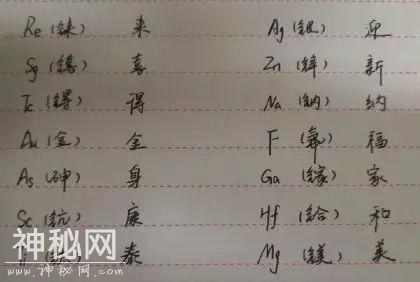 Re (铼) 来 Ag (银) 迎
Sg (𬭳) 喜 Zn (锌) 新
Tc (锝) 得 Na (钠) 纳
Au (金) 金 F (氟) 福
As (砷) 身 Ga (镓) 家
Sc (钪) 康 Hf (铪) 和
泰 Mg (镁) 美
神秘网
WWW.神秘网.COM